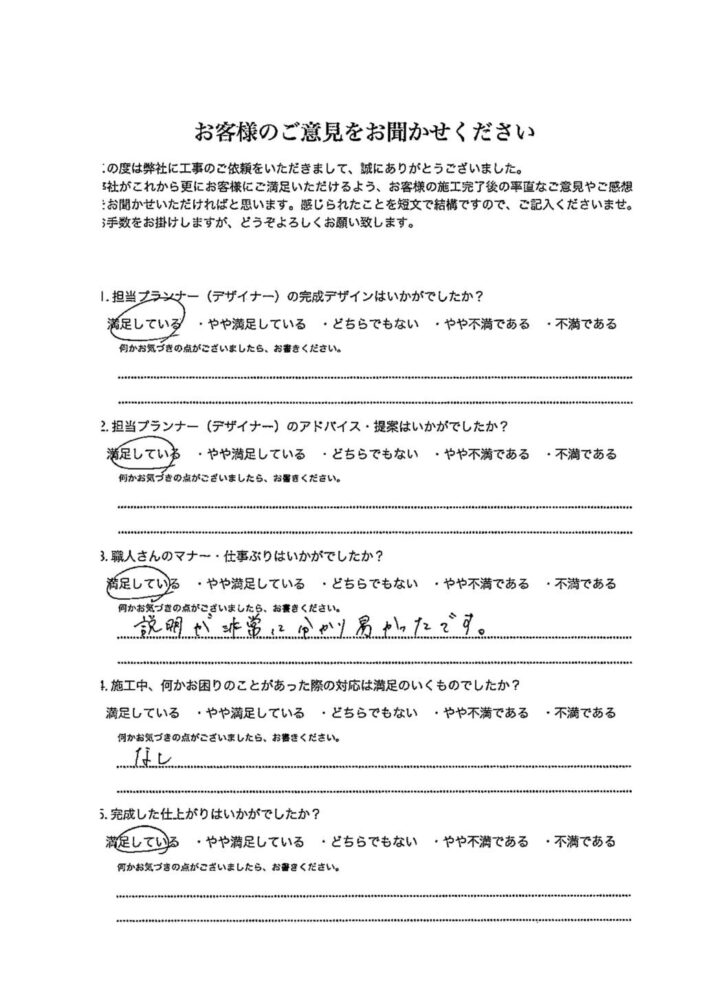 お客様のご意見をお聞かせください
の度は弊社に工事のご依頼をいただきまして、誠にありがとうございました。
社がこれから更にお客様にご満足いただけるよう、お客様の施工完了後の率直なご意見やご感想
お聞かせいただければと思います。感じられたことを短文で結構ですので、ご記入くださいませ。
手数をお掛けしますが、どうぞよろしくお願い致します。
1. 担当プランナー（デザイナー）の完成デザインはいかがでしたか？
満足している ・やや満足している ・どちらでもない ・やや不満である ・不満である
何かお気づきの点がございましたら、お書きください。
2. 担当プランナー（デザイナー）のアドバイス・提案はいかがでしたか？
満足している ・やや満足している ・どちらでもない ・やや不満である ・不満である
何かお気づきの点がございましたら、お書きください。
3. 職人さんのマナー・仕事ぶりはいかがでしたか？
満足している ・やや満足している ・どちらでもない ・やや不満である ・不満である
何かお気づきの点がございましたら、お書きください。
説明が非常に分かり易かったです。
4. 施工中、何かお困りのことがあった際の対応は満足のいくものでしたか？
満足している ・やや満足している ・どちらでもない ・やや不満である ・不満である
何かお気づきの点がございましたら、お書きください。
なし
5. 完成した仕上がりはいかがでしたか？
満足している ・やや満足している ・どちらでもない ・やや不満である ・不満である
何かお気づきの点がございましたら、お書きください。